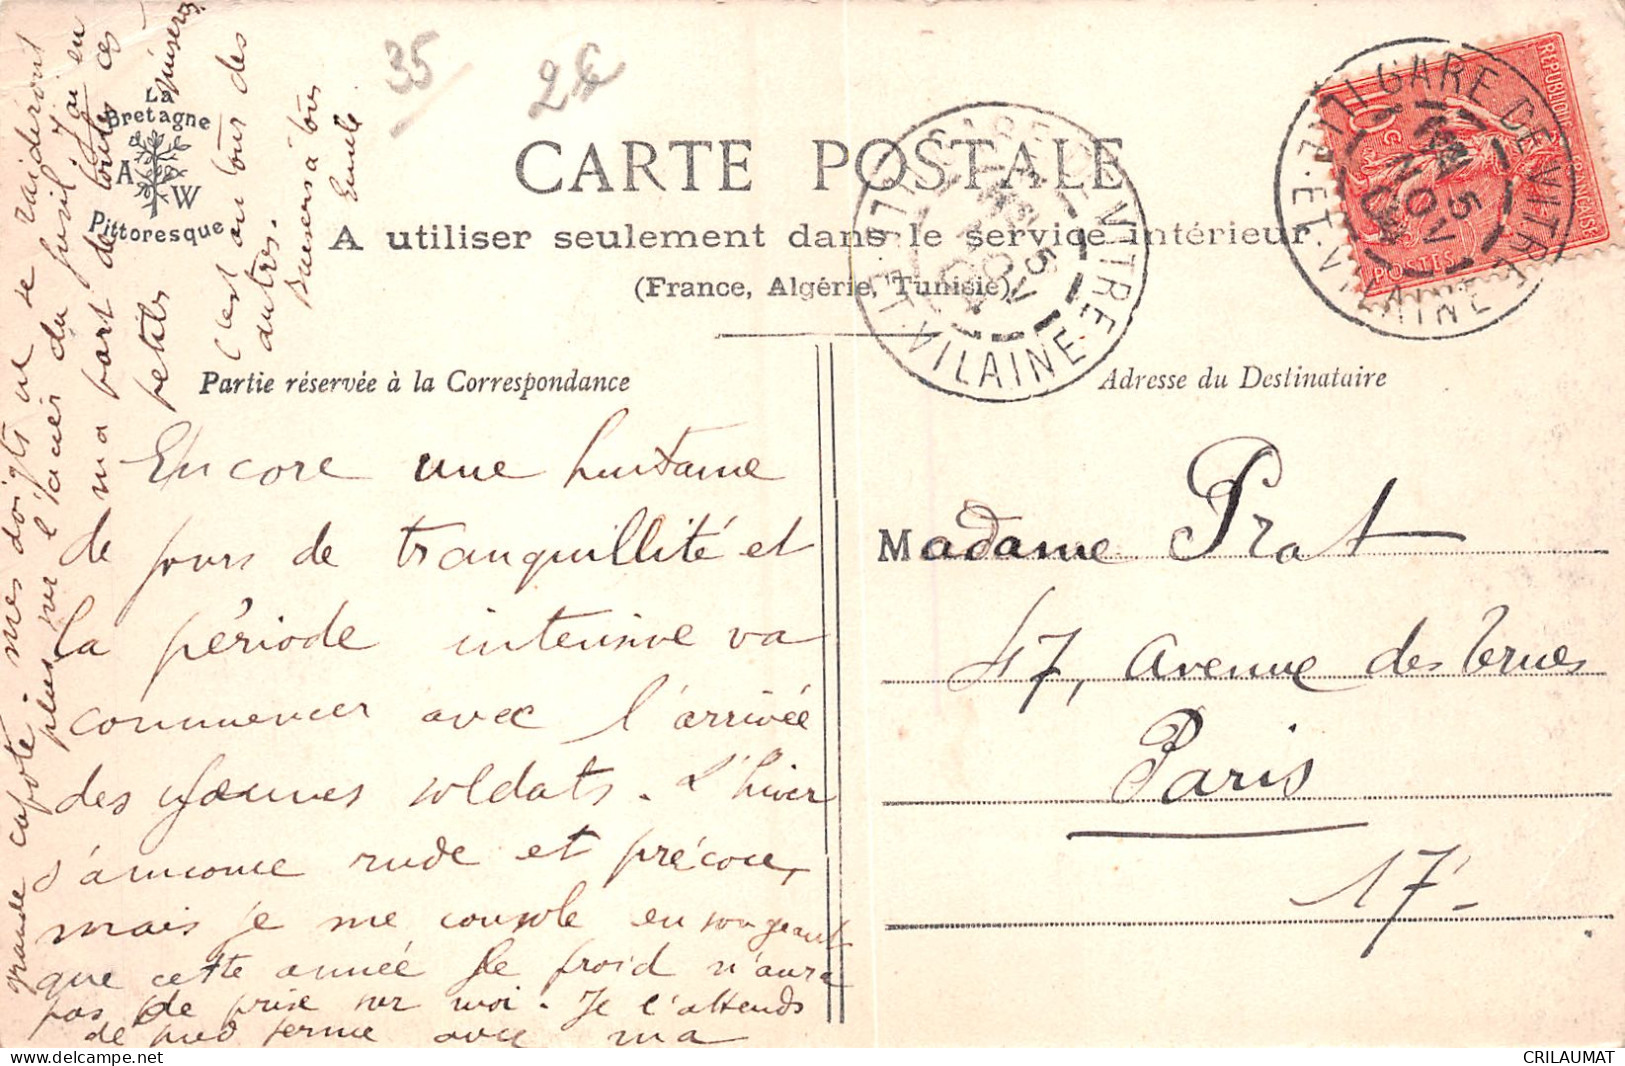 35
2€
La
Bretagne
A W
Pittoresque
CARTE POSTALE
A utiliser seulement dans le service intérieur
(France, Algérie, Tunisie)
Partie réservée à la Correspondance
Adresse du Destinataire
REPUBLIQUE FRANÇAISE
10c
POSTES
GARE DE VITRÉ
ILLE-ET-VILAINE
5
NOV
GARE DE VITRÉ
ILLE-ET-VILAINE
5
NOV
Encore une huitaine
de jours de tranquillité et
la période intensive va
commencer avec l'arrivée
des jeunes soldats. L'hiver
s'annonce rude et précoce,
mais je me console en songeant
que cette année le froid n'aura
pas de prise sur moi. Je l'attends
de pied ferme avec ma
grande capote. mes doigts ne se raidiront
plus sur l'acier du fusil J'ai eu
ma part de toutes ces
petites
C'est au tour des
autres.
Baisers à tous
Emile
Madame Prat
47, Avenue des Ternes
Paris
17e
CRILAUMAT